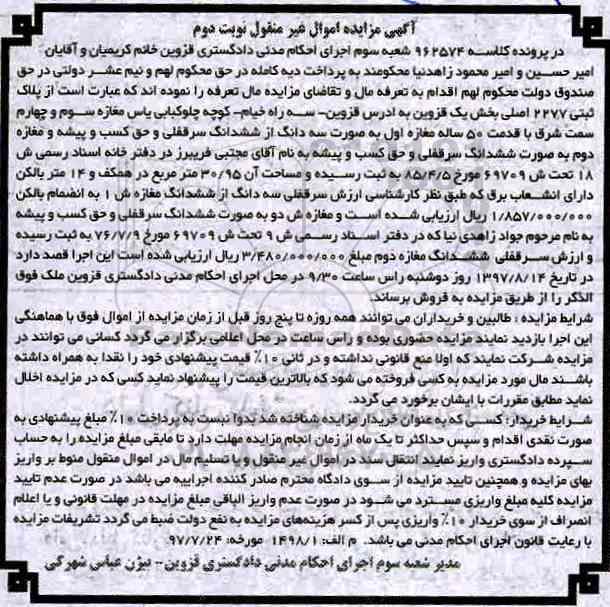 آگهی مزایده اموال غیر منقول نوبت دوم
در پرونده کلاسه ۹۶۲۵۷۴ شعبه سوم اجرای احکام مدنی دادگستری قزوین خانم کریمیان و آقایان
امیر حسین و امیر محمود زاهدنیا محکومند به پرداخت دیه کامله در حق محکوم لهم و نیم عشر دولتی در حق
صندوق دولت محکوم لهم اقدام به تعرفه مال و تقاضای مزایده مال تعرفه را نموده اند که عبارت است از پلاک
ثبتی ۲۲۷۷ اصلی بخش یک قزوین به ادرس قزوین- سه راه خیام- کوچه چلوکبابی یاس مغازه سوم و چهارم
سمت شرق با قدمت ۵۰ ساله مغازه اول به صورت سه دانگ از ششدانگ سرقفلی و حق کسب و پیشه و مغازه
دوم به صورت ششدانگ سرقفلی و حق کسب و پیشه به نام آقای مجتبی فریبرز در دفتر خانه اسناد رسمی ش
۱۸ تحت ش ۶۹۷۰۹ مورخ ۸۵/۴/۵ به ثبت رسیده و مساحت آن ۳۰/۹۵ متر مربع در همکف و ۱۴ متر بالکن
دارای انشعاب برق که طبق نظر کارشناسی ارزش سرقفلی سه دانگ از ششدانگ مغازه ش ۱ به انضمام بالکن
۱/۸۵۷/۰۰۰/۰۰۰ ریال ارزیابی شده است و مغازه ش دو به صورت ششدانگ سرقفلی و حق کسب و پیشه
به نام مرحوم جواد زاهدی نیا که در دفتر اسناد رسمی ش ۹ تحت ش ۶۹۷۰۹ مورخ ۷۶/۷/۹ به ثبت رسیده
و ارزش سرقفلی ششدانگ مغازه دوم مبلغ ۳/۴۸۰/۰۰۰/۰۰۰ ریال ارزیابی شده است این اجرا قصد دارد
در تاریخ ۱۳۹۷/۸/۱۴ روز دوشنبه راس ساعت ۹/۳۰ در محل اجرای احکام مدنی دادگستری قزوین ملک فوق
الذکر را از طریق مزایده به فروش برساند.
شرایط مزایده : طالبین و خریداران می توانند همه روزه تا پنج روز قبل از زمان مزایده از اموال فوق با هماهنگی
این اجرا بازدید نمایند مزایده حضوری بوده و راس ساعت در محل اعلامی برگزار می گردد کسانی می توانند در
مزایده شرکت نمایند که اولا منع قانونی نداشته و در ثانی ۱۰٪ قیمت پیشنهادی خود را نقدا به همراه داشته
باشند مال مورد مزایده به کسی فروخته می شود که بالاترین قیمت را پیشنهاد نماید کسی که در مزایده اخلال
نماید مطابق مقررات با ایشان برخورد می گردد.
شرایط خریدار: کسی که به عنوان خریدار مزایده شناخته شد بدوا نبست به پرداخت ۱۰٪ مبلغ پیشنهادی به
صورت نقدی اقدام و سپس حداکثر تا یک ماه از زمان انجام مزایده مهلت دارد تا مابقی مبلغ مزایده را به حساب
سپرده دادگستری واریز نمایند انتقال سند در اموال غیر منقول و یا تسلیم مال در اموال منقول منوط بر واریز
بهای مزایده و همچنین تایید مزایده از سوی دادگاه محترم صادر کننده اجراییه می باشد در صورت عدم تایید
مزایده کلیه مبلغ واریزی مسترد می شود در صورت عدم واریز الباقی مبلغ مزایده در مهلت قانونی و یا اعلام
انصراف از سوی خریدار ۱۰٪ واریزی پس از کسر هزینه‌های مزایده به نفع دولت ضبط می گردد تشریفات مزایده
با رعایت قانون اجرای احکام مدنی می باشد. م الف: ۱۴۹۸/۱ مورخه: ۹۷/۷/۲۴
مدیر شعبه سوم اجرای احکام مدنی دادگستری قزوین – بیژن عباسی شهرکی